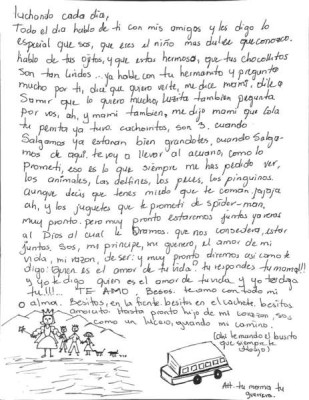 luchando cada día,
Todo el dia hablo de ti con mis amigos y les digo lo
especial que sos, que eres el niño mas dulce que conozco.
hablo de tus ojitos, y que estas hermoso, que tus chocollitos
son tan lindos... ya hable con tu hermanito y pregunta
mucho por ti, dia que quiero verte, me dice mami, dile a
Samir que lo quiero mucho, Luzita tambien pregunta
por vos, ah, y mami tambien, me dijo mami que Lola
tu perrita ya tuvo cachorritos, son 3. cuando
Salgamos ya estaran bien grandotes, cuando Salga-
mos de aqui te voy a llevar al acuario, como lo
Prometí, eso es lo que siempre me has pedido ver,
los animales, los delfines, los peces, los pinguinos.
Aunque decis que tenes miedo que te coman, jajaja
ah, y los juguetes que te prometi de spider-man,
muy pronto. pero muy pronto estaremos juntos ya
al Dios al cual le oramos. que nos conseda, estar
juntos. Sos, mi principe, mi guerrero, el amor de mi
vida, mi razon, de ser; y muy pronto diremos asi como te
digo: Quien es el amor de tu vida? tu respondes tu mama!!!
y yo te digo quien es el amor de tu vida y yo te digo
tu!!!... TE AMO. Besos. te amo con todo mi
alma. Besitos, en la frente. besito en el cachete. besitos
amorcito. Hasta pronto hijo de mi corazon, sos
como un lucero, guiando mi camino.
(ahi te mando el busito
que siempre te
dibujo)
Att. tu mama tu
guerrera.